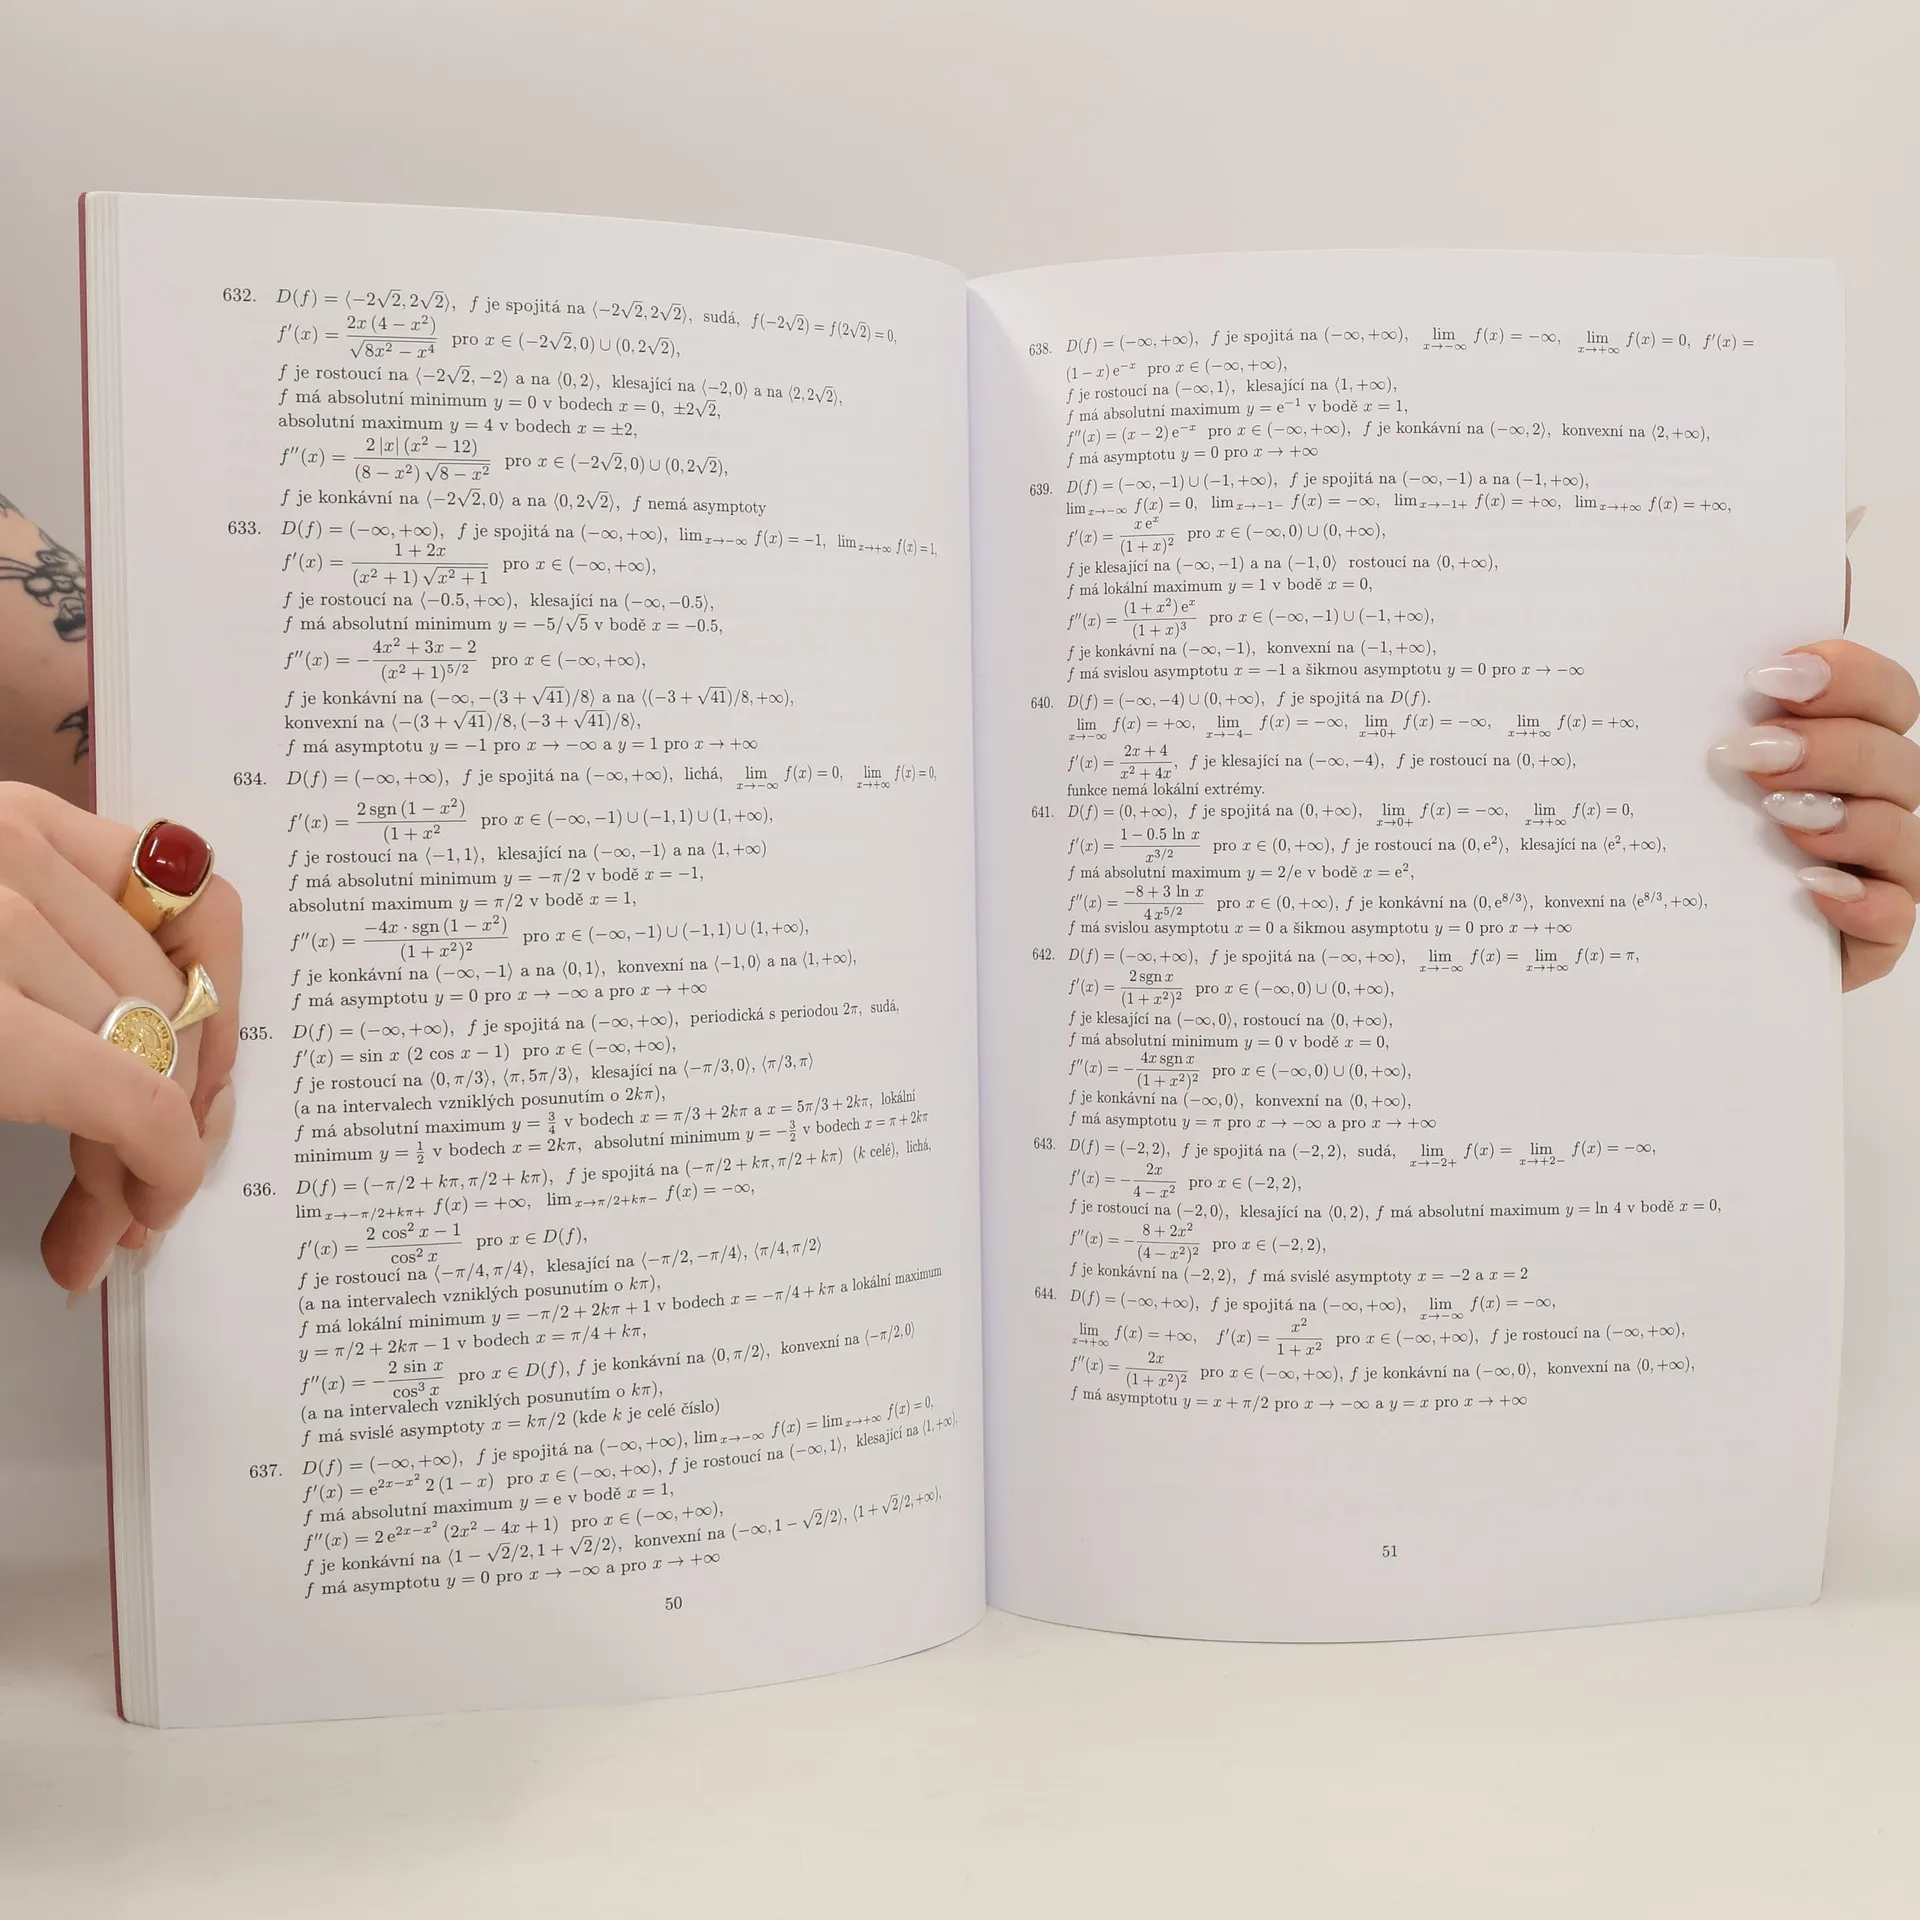 632. D(f) = ⟨−2√2, 2√2⟩, f je spojitá na ⟨−2√2, 2√2⟩, sudá, f(−2√2) = f(2√2) = 0,
f′(x) = 2x (4 − x²) / √(8x² − x⁴) pro x ∈ (−2√2, 0) ∪ (0, 2√2),
f je rostoucí na ⟨−2√2, −2⟩ a na ⟨0, 2⟩, klesající na ⟨−2, 0⟩ a na ⟨2, 2√2⟩,
f má absolutní minimum y = 0 v bodech x = 0, ±2√2,
absolutní maximum y = 4 v bodech x = ±2,
f″(x) = 2 |x| (x² − 12) / (8 − x²) √(8 − x²) pro x ∈ (−2√2, 0) ∪ (0, 2√2),
f je konkávní na ⟨−2√2, 0⟩ a na ⟨0, 2√2⟩, f nemá asymptoty
633. D(f) = (−∞, +∞), f je spojitá na (−∞, +∞), lim x→−∞ f(x) = −1, lim x→+∞ f(x) = 1,
f′(x) = 1 + 2x / (x² + 1) √(x² + 1) pro x ∈ (−∞, +∞),
f je rostoucí na ⟨−0.5, +∞), klesající na (−∞, −0.5⟩,
f má absolutní minimum y = −5/√5 v bodě x = −0.5,
f″(x) = − 4x² + 3x − 2 / (x² + 1)^5/2 pro x ∈ (−∞, +∞),
f je konkávní na (−∞, −(3 + √41)/8⟩ a na ⟨(−3 + √41)/8, +∞),
konvexní na ⟨−(3 + √41)/8, (−3 + √41)/8⟩,
f má asymptotu y = −1 pro x → −∞ a y = 1 pro x → +∞
634. D(f) = (−∞, +∞), f je spojitá na (−∞, +∞), lichá, lim x→−∞ f(x) = 0, lim x→+∞ f(x) = 0,
f′(x) = 2 sgn (1 − x²) / (1 + x² pro x ∈ (−∞, −1) ∪ (−1, 1) ∪ (1, +∞),
f je rostoucí na ⟨−1, 1⟩, klesající na (−∞, −1⟩ a na ⟨1, +∞)
f má absolutní minimum y = −π/2 v bodě x = −1,
absolutní maximum y = π/2 v bodě x = 1,
f″(x) = −4x · sgn (1 − x²) / (1 + x²)² pro x ∈ (−∞, −1) ∪ (−1, 1) ∪ (1, +∞),
f je konkávní na (−∞, −1⟩ a na ⟨0, 1⟩, konvexní na ⟨−1, 0⟩ a na ⟨1, +∞),
f má asymptotu y = 0 pro x → −∞ a pro x → +∞
635. D(f) = (−∞, +∞), f je spojitá na (−∞, +∞), periodická s periodou 2π, sudá,
f′(x) = sin x (2 cos x − 1) pro x ∈ (−∞, +∞),
f je rostoucí na ⟨0, π/3⟩, ⟨π, 5π/3⟩, klesající na ⟨−π/3, 0⟩, ⟨π/3, π⟩
(a na intervalech vzniklých posunutím o 2kπ),
f má absolutní maximum y = 3/4 v bodech x = π/3 + 2kπ a x = 5π/3 + 2kπ, lokální
minimum y = 1/2 v bodech x = 2kπ, absolutní minimum y = −3/2 v bodech x = π + 2kπ
636. D(f) = (−π/2 + kπ, π/2 + kπ), f je spojitá na (−π/2 + kπ, π/2 + kπ) (k celé), lichá,
lim x→−π/2+kπ+ f(x) = +∞, lim x→π/2+kπ− f(x) = −∞,
f′(x) = 2 cos² x − 1 / cos² x pro x ∈ D(f),
f je rostoucí na ⟨−π/4, π/4⟩, klesající na ⟨−π/2, −π/4⟩, ⟨π/4, π/2⟩
(a na intervalech vzniklých posunutím o kπ),
f má lokální minimum y = −π/2 + 2kπ + 1 v bodech x = −π/4 + kπ a lokální maximum
y = π/2 + 2kπ − 1 v bodech x = π/4 + kπ,
f″(x) = − 2 sin x / cos³ x pro x ∈ D(f), f je konkávní na ⟨0, π/2⟩, konvexní na ⟨−π/2, 0⟩
(a na intervalech vzniklých posunutím o kπ),
f má svislé asymptoty x = kπ/2 (kde k je celé číslo)
637. D(f) = (−∞, +∞), f je spojitá na (−∞, +∞), lim x→−∞ f(x) = lim x→+∞ f(x) = 0,
f′(x) = e^2x−x² 2 (1 − x) pro x ∈ (−∞, +∞), f je rostoucí na (−∞, 1⟩, klesající na ⟨1, +∞),
f má absolutní maximum y = e v bodě x = 1,
f″(x) = 2 e^2x−x² (2x² − 4x + 1) pro x ∈ (−∞, +∞),
f je konkávní na ⟨1 − √2/2, 1 + √2/2⟩, konvexní na (−∞, 1 − √2/2⟩, ⟨1 + √2/2, +∞),
f má asymptotu y = 0 pro x → −∞ a pro x → +∞
50
638. D(f) = (−∞, +∞), f je spojitá na (−∞, +∞), lim x→−∞ f(x) = −∞, lim x→+∞ f(x) = 0, f′(x) =
(1 − x) e^−x pro x ∈ (−∞, +∞),
f je rostoucí na (−∞, 1⟩, klesající na ⟨1, +∞),
f má absolutní maximum y = e^−1 v bodě x = 1,
f″(x) = (x − 2) e^−x pro x ∈ (−∞, +∞), f je konkávní na (−∞, 2⟩, konvexní na ⟨2, +∞),
f má asymptotu y = 0 pro x → +∞
639. D(f) = (−∞, −1) ∪ (−1, +∞), f je spojitá na (−∞, −1) a na (−1, +∞),
lim x→−∞ f(x) = 0, lim x→−1− f(x) = −∞, lim x→−1+ f(x) = +∞, lim x→+∞ f(x) = +∞,
f′(x) = x e^x / (1 + x)² pro x ∈ (−∞, 0) ∪ (0, +∞),
f je klesající na (−∞, −1) a na (−1, 0⟩ rostoucí na ⟨0, +∞),
f má lokální maximum y = 1 v bodě x = 0,
f″(x) = (1 + x²) e^x / (1 + x)³ pro x ∈ (−∞, −1) ∪ (−1, +∞),
f je konkávní na (−∞, −1), konvexní na (−1, +∞),
f má svislou asymptotu x = −1 a šikmou asymptotu y = 0 pro x → −∞
640. D(f) = (−∞, −4) ∪ (0, +∞), f je spojitá na D(f).
lim x→−∞ f(x) = +∞, lim x→−4− f(x) = −∞, lim x→0+ f(x) = −∞, lim x→+∞ f(x) = +∞,
f′(x) = 2x + 4 / x² + 4x, f je klesající na (−∞, −4), f je rostoucí na (0, +∞),
funkce nemá lokální extrémy.
641. D(f) = (0, +∞), f je spojitá na (0, +∞), lim x→0+ f(x) = −∞, lim x→+∞ f(x) = 0,
f′(x) = 1 − 0.5 ln x / x^3/2 pro x ∈ (0, +∞), f je rostoucí na (0, e²⟩, klesající na ⟨e², +∞),
f má absolutní maximum y = 2/e v bodě x = e²,
f″(x) = −8 + 3 ln x / 4 x^5/2 pro x ∈ (0, +∞), f je konkávní na (0, e^8/3⟩, konvexní na ⟨e^8/3, +∞),
f má svislou asymptotu x = 0 a šikmou asymptotu y = 0 pro x → +∞
642. D(f) = (−∞, +∞), f je spojitá na (−∞, +∞), lim x→−∞ f(x) = lim x→+∞ f(x) = π,
f′(x) = 2 sgn x / (1 + x²)² pro x ∈ (−∞, 0) ∪ (0, +∞),
f je klesající na (−∞, 0⟩, rostoucí na ⟨0, +∞),
f má absolutní minimum y = 0 v bodě x = 0,
f″(x) = − 4x sgn x / (1 + x²)² pro x ∈ (−∞, 0) ∪ (0, +∞),
f je konkávní na (−∞, 0⟩, konvexní na ⟨0, +∞),
f má asymptotu y = π pro x → −∞ a pro x → +∞
643. D(f) = (−2, 2), f je spojitá na (−2, 2), sudá, lim x→−2+ f(x) = lim x→+2− f(x) = −∞,
f′(x) = − 2x / 4 − x² pro x ∈ (−2, 2),
f je rostoucí na (−2, 0⟩, klesající na ⟨0, 2), f má absolutní maximum y = ln 4 v bodě x = 0,
f″(x) = − 8 + 2x² / (4 − x²)² pro x ∈ (−2, 2),
f je konkávní na (−2, 2), f má svislé asymptoty x = −2 a x = 2
644. D(f) = (−∞, +∞), f je spojitá na (−∞, +∞), lim x→−∞ f(x) = −∞,
lim x→+∞ f(x) = +∞, f′(x) = x² / 1 + x² pro x ∈ (−∞, +∞), f je rostoucí na (−∞, +∞),
f″(x) = 2x / (1 + x²)² pro x ∈ (−∞, +∞), f je konkávní na (−∞, 0⟩, konvexní na ⟨0, +∞),
f má asymptotu y = x + π/2 pro x → −∞ a y = x pro x → +∞
51